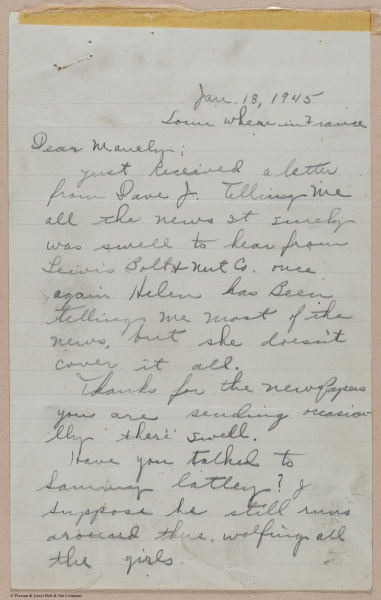 Jan. 18, 1945
Some where in France
Dear Manely;
just received a letter
from Dave J. Telling Me
all the news It surely
was swell to hear from
Lewis Bolt & Nut Co. once
again Helen has Been
telling me most of the
news, but she doesn't
cover it all.
Thanks for the newspapers
you are sending occasion
lly there swell.
Have you talked to
Sammy latley? I
suppose he still runs
arround there, wolfing all
the girls.
© Pearson & Lewis Bolt & Nut Company